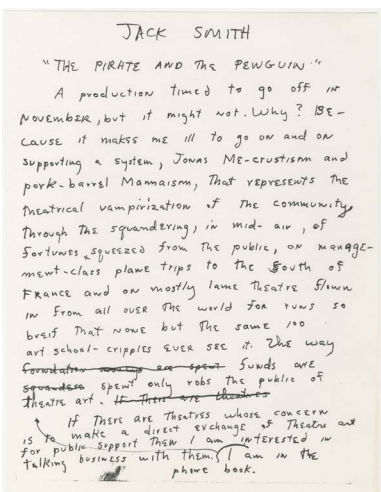 JACK SMITH
"THE PIRATE AND THE PENGUIN."
A production timed to go off in
NOVEMBER, but it might not. Why? BE-
cause it makes me ill to go on and on
supporting a system, Jonas Me-crustism and
pork-barrel Mannaism, that represents the
theatrical vampirization of the community
through the squandering, in mid-air, of
fortunes squeezed from the public, on manage-
ment-class plane trips to the South of
France and on mostly lame theatre flown
in from all over the world for runs so
breif that none but the same 100
art school-cripples ever see it. The way
foundation money are spent funds are
squanders spent only robs the public of
theatre art. If there are theatres
If there are theatres whose concern
is to make a direct exchange of theatre art
for public support then I am interested in
talking business with them. I am in the
phone book.